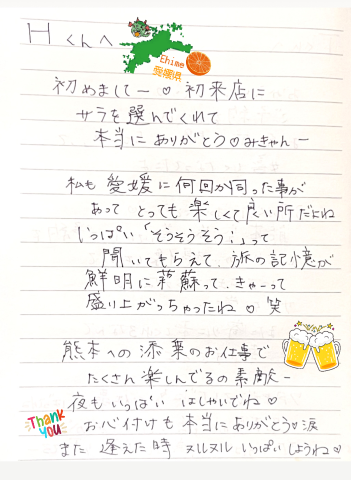 Hくんへ
Ehime
愛媛県
初めましてー♡初来店に
サラを選んでくれて
本当にありがとう♡みきゃんー
私も愛媛に何回か伺った事が
あって とっても楽しくて良い所だよね
いっぱい「そうそうそう!」って
聞いてもらえて、旅の記憶が
鮮明に蘇って、きゃーって
盛り上がっちゃったね♡笑
熊本への添乗のお仕事で
たくさん楽しんでるの素敵ー
夜もいっぱい はしゃいでね♡
お心付けも本当にありがとう♡涙
また 逢えた時 ヌルヌル いっぱいしようね♡
THANK
YOU